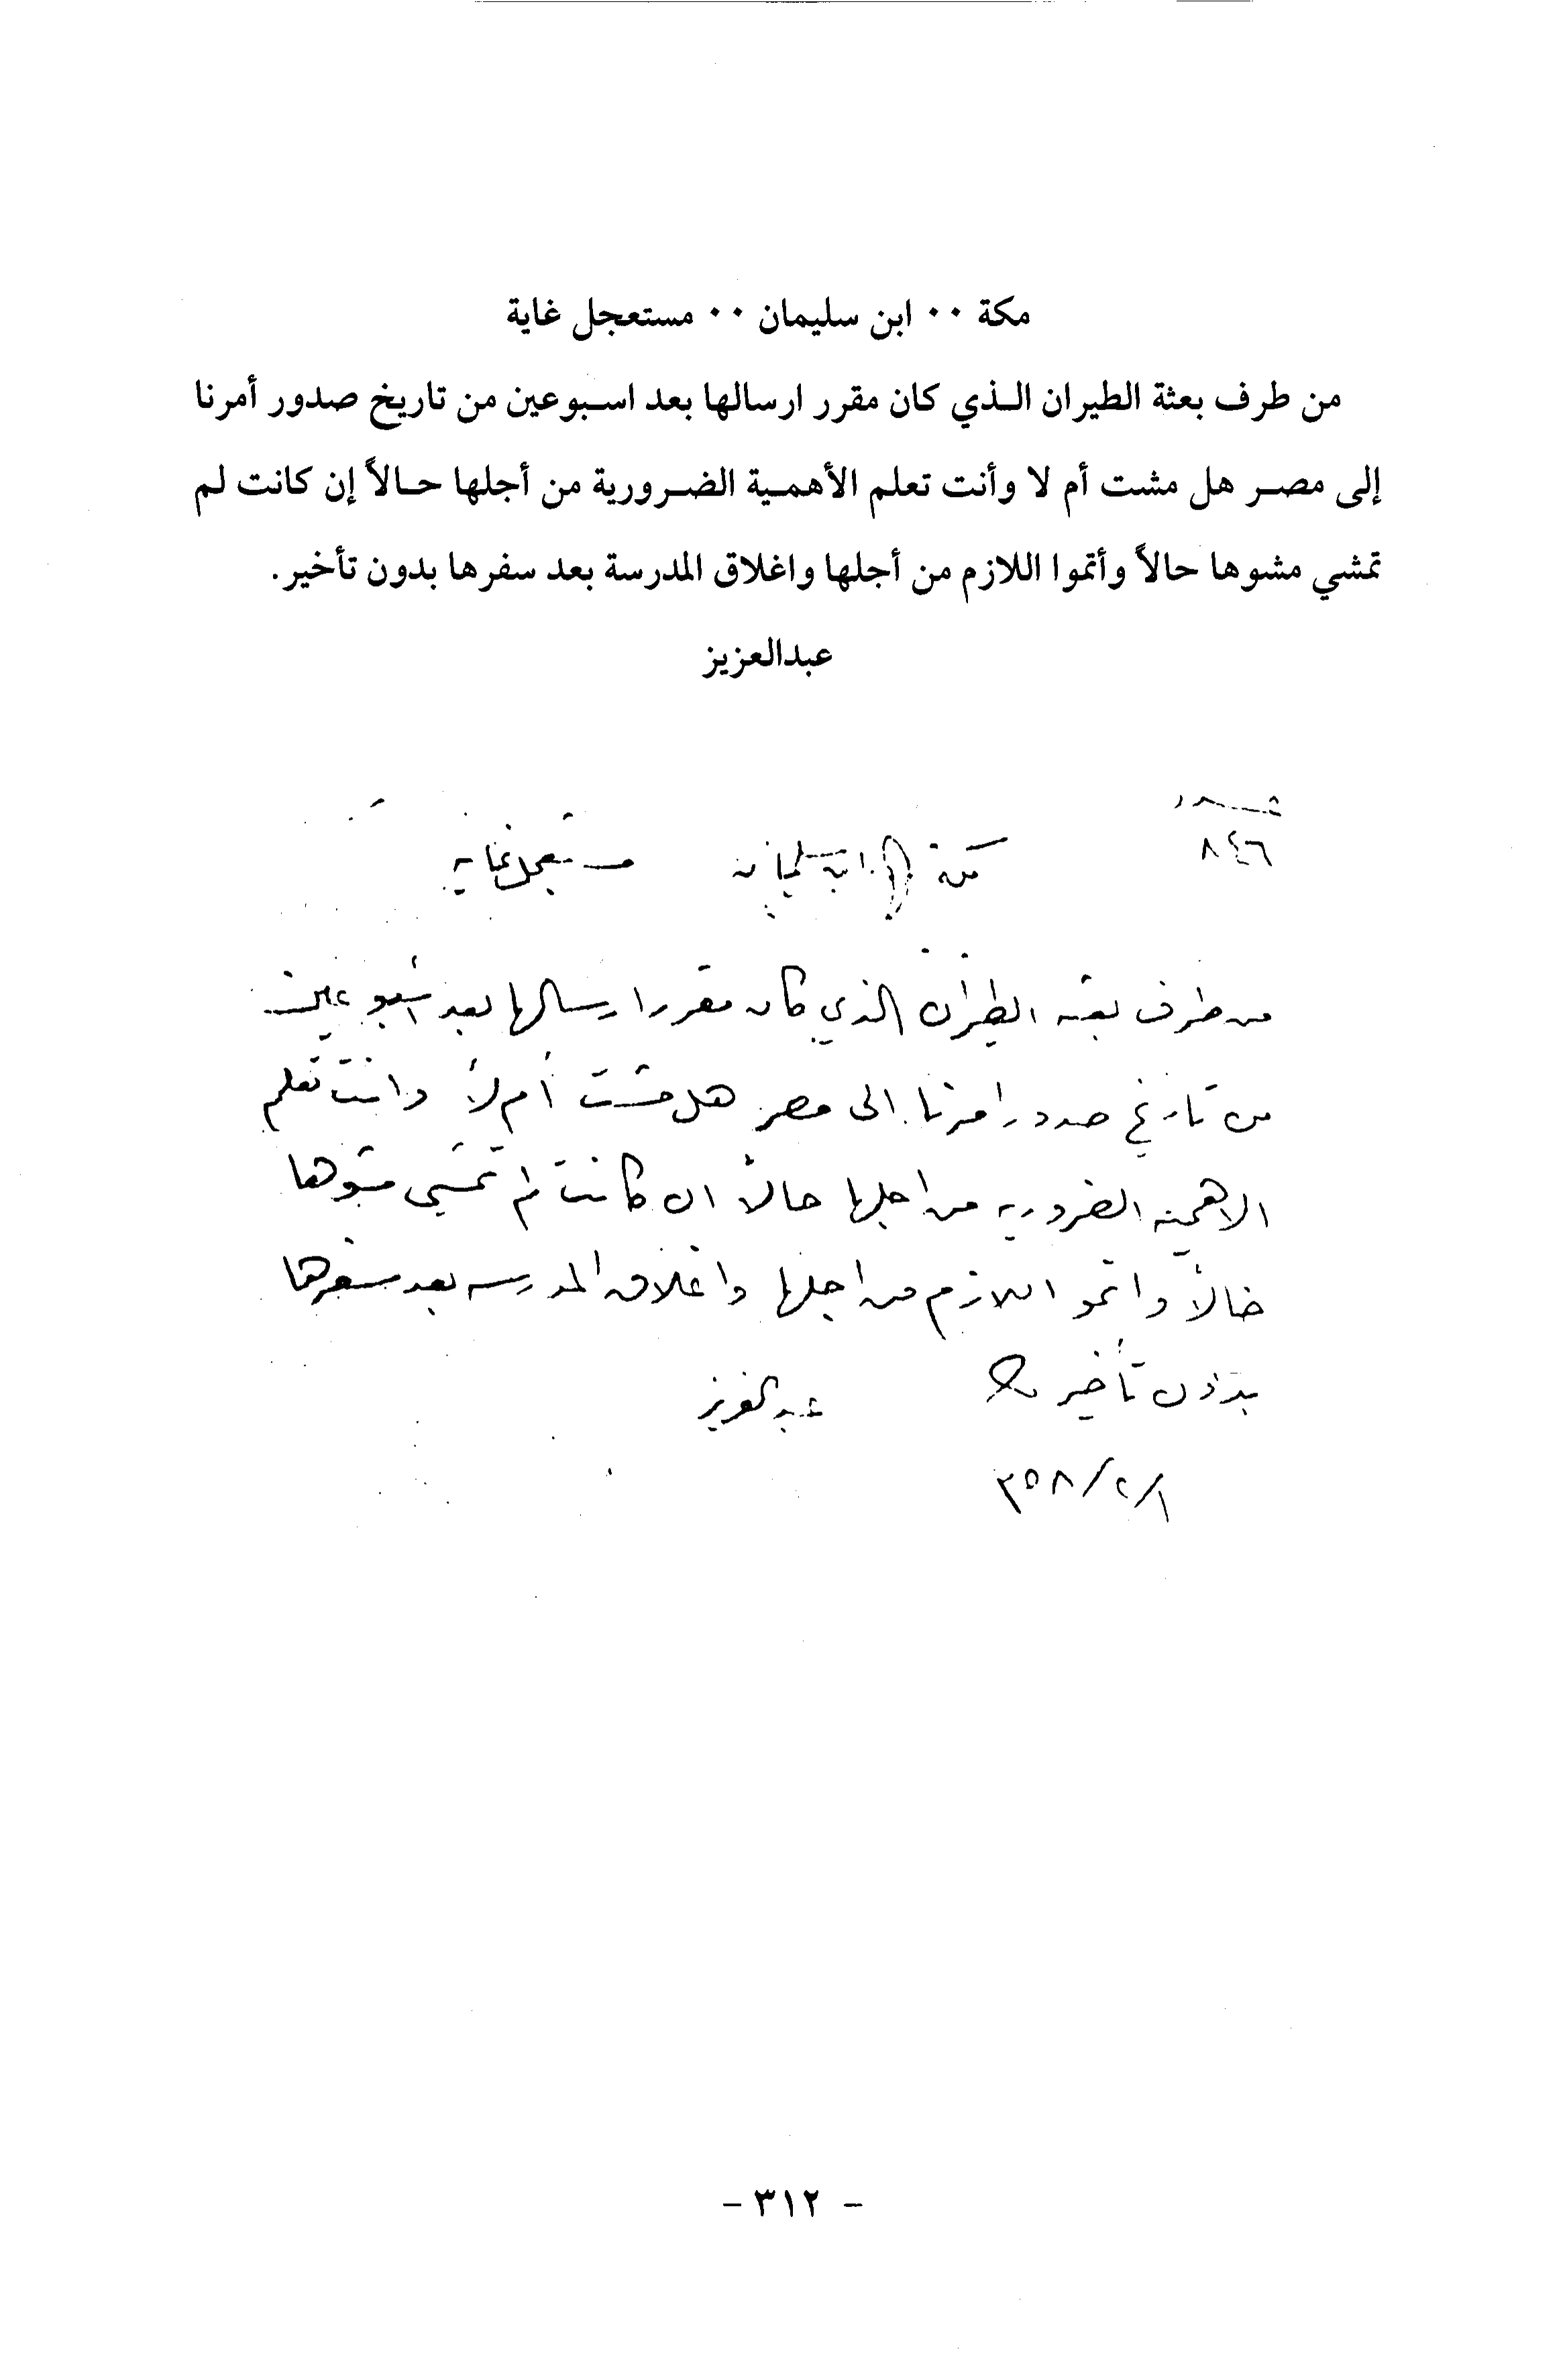 مكة ٠٠ ابن سليمان ٠٠ مستعجل غاية
من طرف بعثة الطيران الـذي كان مقرر ارسالها بعد اسـبوعين من تاريخ صدور أمرنا
إلى مصـر هل مشت أم لا وأنت تعلم الأهمـية الضـرورية من أجلها حـالاً إن كانت لم
تمشي مشوها حالاً وأتموا اللازم من أجلها واغلاق المدرسة بعد سفرها بدون تأخير.
عبدالعزيز
٨٤٦
مكة ابن سليمان مستعجل غايه
من طرف بعثه الطيران الذي كان مقرر ارسالها بعد اسبوعين
من تاريخ صدور امرنا الى مصر هل مشت أم لا وانت تعلم
الاهميه الضروريه من اجلها حالاً ان كانت لم تمشي مشوها
حالاً واتمو اللازم من اجلها واغلاق المدرسه بعد سفرها
بدون تأخير عبدالعزيز
١/٢/٣٥٨
- ٣١٢ -